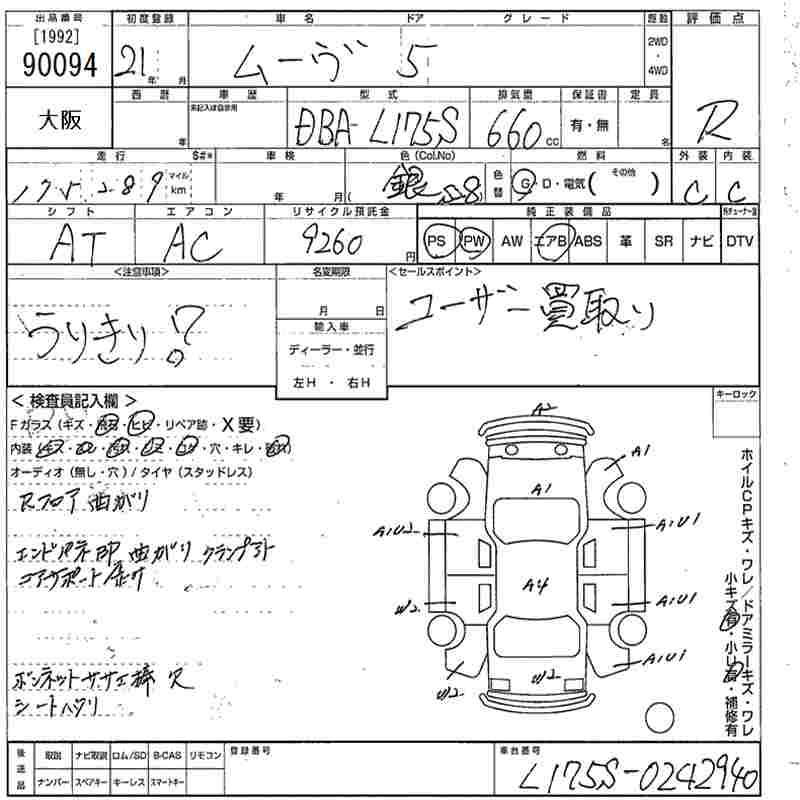 出品番号 初度登録 車名 ドア グレード 駆動 評価点
[1992]
90094 21年 月 ムーヴ 5 2WD・4WD
大阪 西暦 車歴 型式 排気量 保証書 定員
未記入は自家用
年 DBA-L175S 660cc 有・無 名 R
走行 $#* 車検 色(Col.No) 燃料 外装 内装
マイル km 年 月( 銀 S28 色替 G・D・電気( その他 ) C C
シフト エアコン リサイクル預託金 純正装備品
AT AC 9260円 PS PW AW エアB ABS 革 SR ナビ DTV
<注意事項> 名変期限 <セールスポイント>
うりきり? 月 日 ユーザー買取り
輸入車
ディーラー・並行
左H・右H
<検査員記入欄> キーロック
Fガラス(キズ・ ・ヒビ・リペア跡・X要)
内装 ・穴・キレ・
オーディオ(無し・穴)/タイヤ(スタッドレス)
Rフロア曲がり
エンドパネ 曲がり クランプあと
コアサポート
ボンネットササエ棒 穴
シートハクリ
A2
A1
A1
A1U2 A1U1
A4
W2 A1U1
A1U1
W2 W2
ホイルCPキズ・ワレ/ドアミラーキズ・ワレ
小キズ有・小U有・補修有
後送品 取説 ナビ取説 ロム/SD B-CAS リモコン 登録番号 車台番号
ナンバー スペアキー キーレス スマートキー L175S-0242940